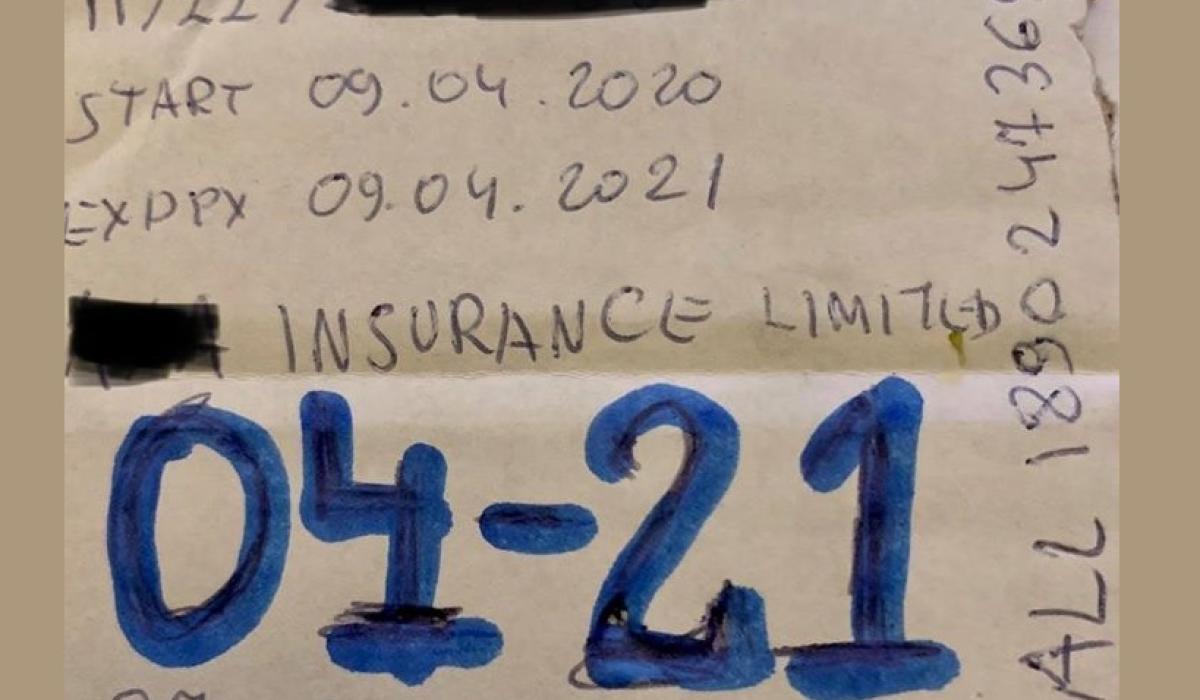 START 09.04.2020
EXPPX 09.04.2021
INSURANCE LIMITED
04-21
ALL 18902447369